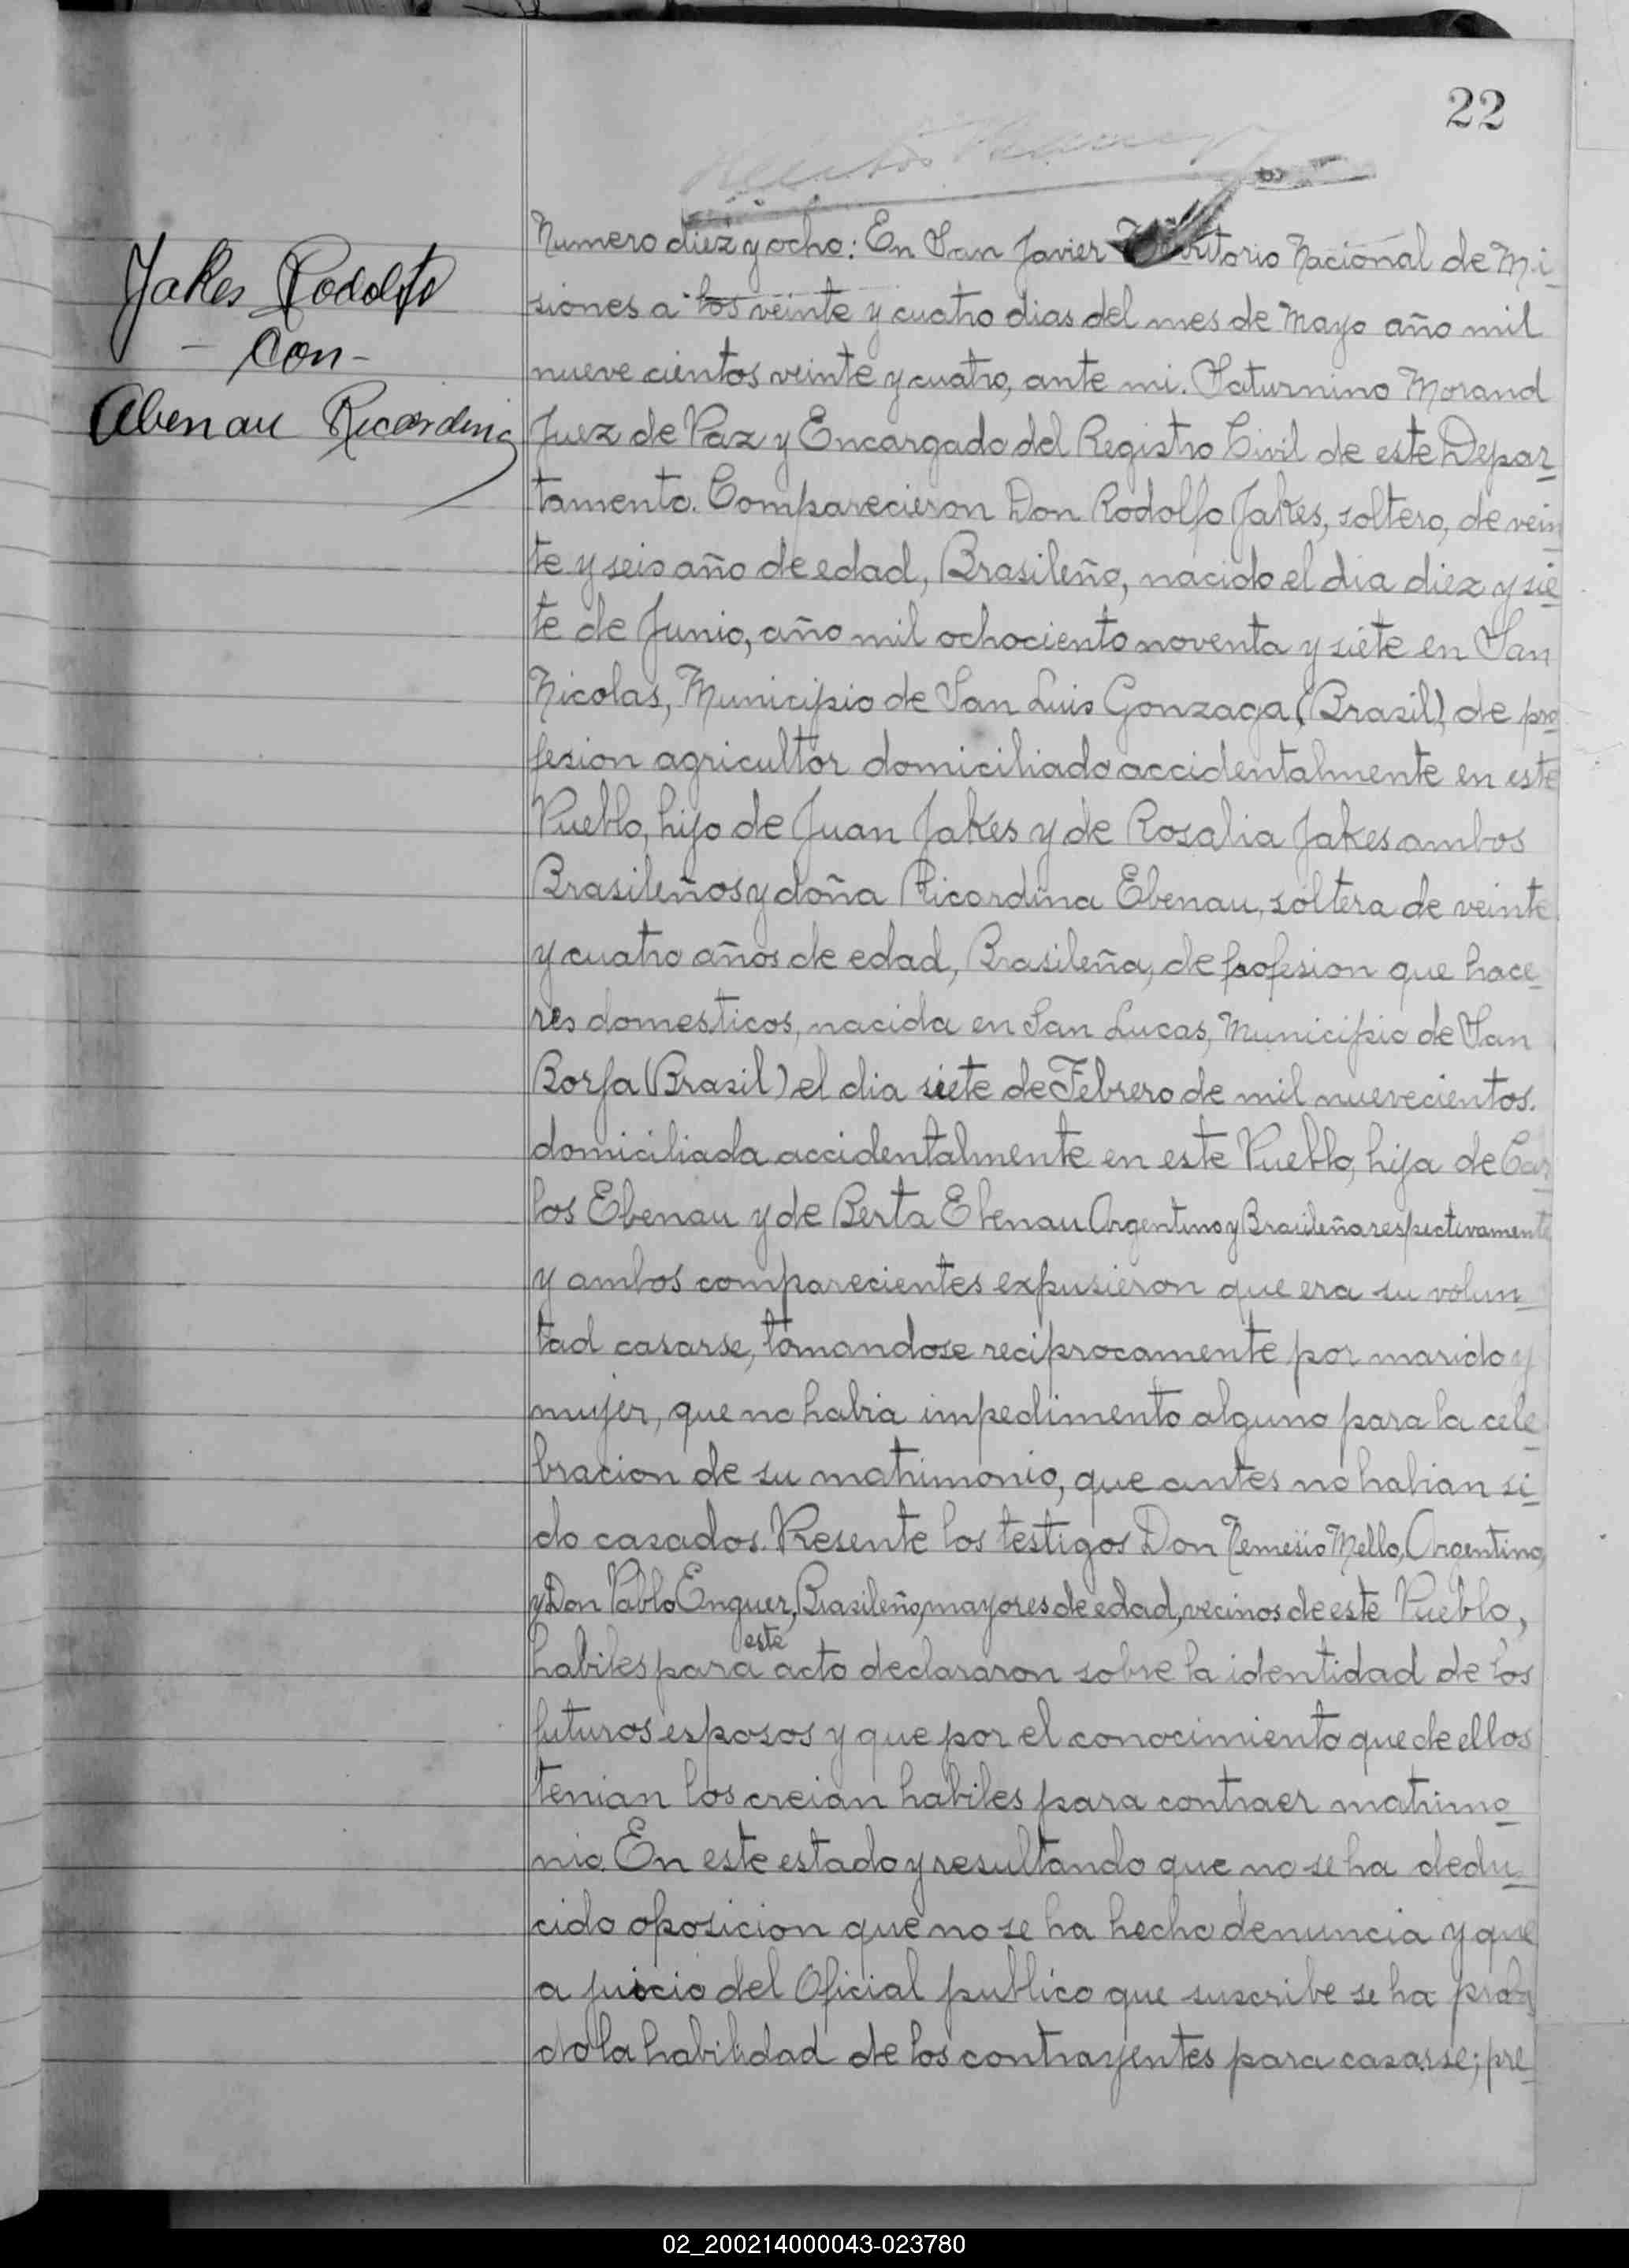 22
Jakes Rodolfo
- Con -
Abenau Ricardina
Numero diez y ocho: En San Javier Territorio Nacional de Mi-
siones a los veinte y cuatro dias del mes de Mayo año mil
nueve cientos veinte y cuatro, ante mi. Saturnino Morand
Juez de Paz y Encargado del Registro Civil de este Depar-
tamento. Comparecieron Don Rodolfo Jakes, soltero, de vein-
te y seis año de edad, Brasileño, nacido el dia diez y sie-
te de Junio, año mil ochociento noventa y siete en San
Nicolas, Municipio de San Luis Gonzaga (Brasil) de pro-
fesion agricultor domiciliado accidentalmente en este
Pueblo, hijo de Juan Jakes y de Rosalia Jakes ambos
Brasileños y doña Ricardina Ebenau, soltera de veinte
y cuatro años de edad, Brasileña, de profesion que hace-
res domesticos, nacida en San Lucas, Municipio de San
Borja (Brasil) el dia siete de Febrero de mil nuevecientos.
domiciliada accidentalmente en este Pueblo, hija de Car-
los Ebenau y de Berta Ebenau Argentino y Brasileña respectivamente
y ambos comparecientes expusieron que era su volun-
tad casarse, tomandose reciprocamente por marido y
mujer, que no habia impedimento alguno para la cele-
bracion de su matrimonio, que antes no habian si-
do casados. Presente los testigos Don Nemesio Mello, Argentino,
y Don Pablo Enguer, Brasileño, mayores de edad, vecinos de este Pueblo,
habiles para este acto declararon sobre la identidad de los
futuros esposos y que por el conocimiento que de ellos
tenian los creian habiles para contraer matrimo-
nio. En este estado y resultando que no se ha dedu-
cido oposicion que no se ha hecho denuncia y que
a juicio del Oficial publico que suscribe se ha proba
do la habilidad de los contrayentes para casarse; pre-
02_200214000043-023780